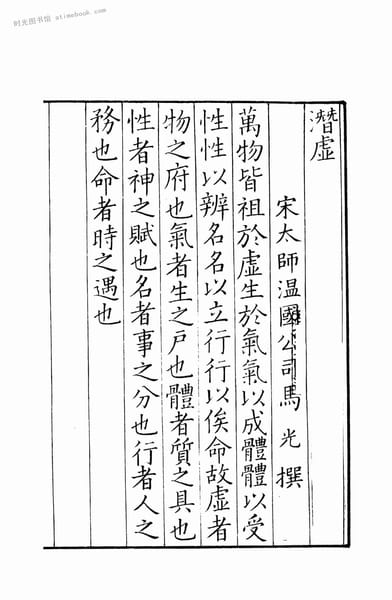 时光图书馆 atimebook.com
潛虛
宋太師温國公司馬光撰
萬物皆祖於虛生於氣氣以成體體以受
性性以辨名名以立行行以俟命故虛者
物之府也氣者生之戶也體者質之具也
性者神之賦也名者事之分也行者人之
務也命者時之遇也